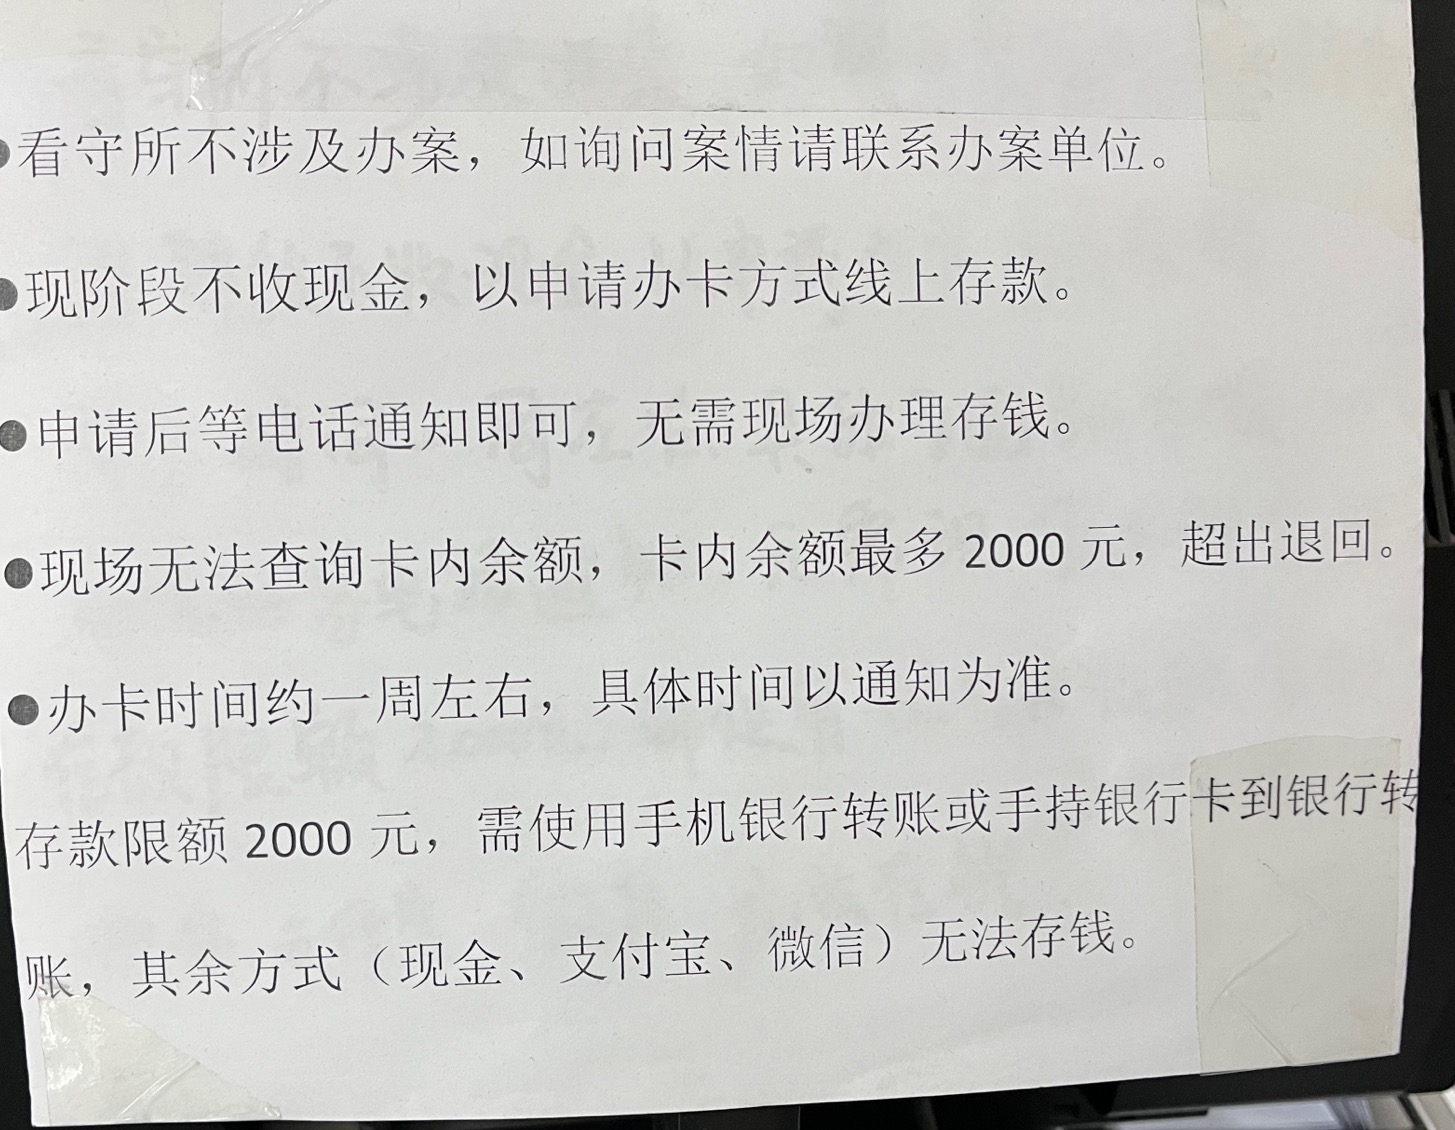 ●看守所不涉及办案，如询问案情请联系办案单位。
●现阶段不收现金，以申请办卡方式线上存款。
●申请后等电话通知即可，无需现场办理存钱。
●现场无法查询卡内余额，卡内余额最多 2000 元，超出退回。
●办卡时间约一周左右，具体时间以通知为准。
存款限额 2000 元，需使用手机银行转账或手持银行卡到银行转
账，其余方式（现金、支付宝、微信）无法存钱。